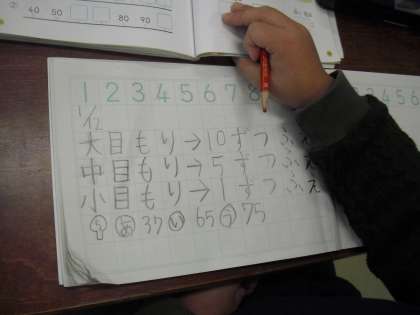 ② 40 50 80 90
1 2 3 4 5 6 7 8
4 5 6
1/12
大目もり→10ずつふえ
中目もり→5ずつふえ
小目もり→1ずつふえ
⑤ あ 37 い 65 う 75